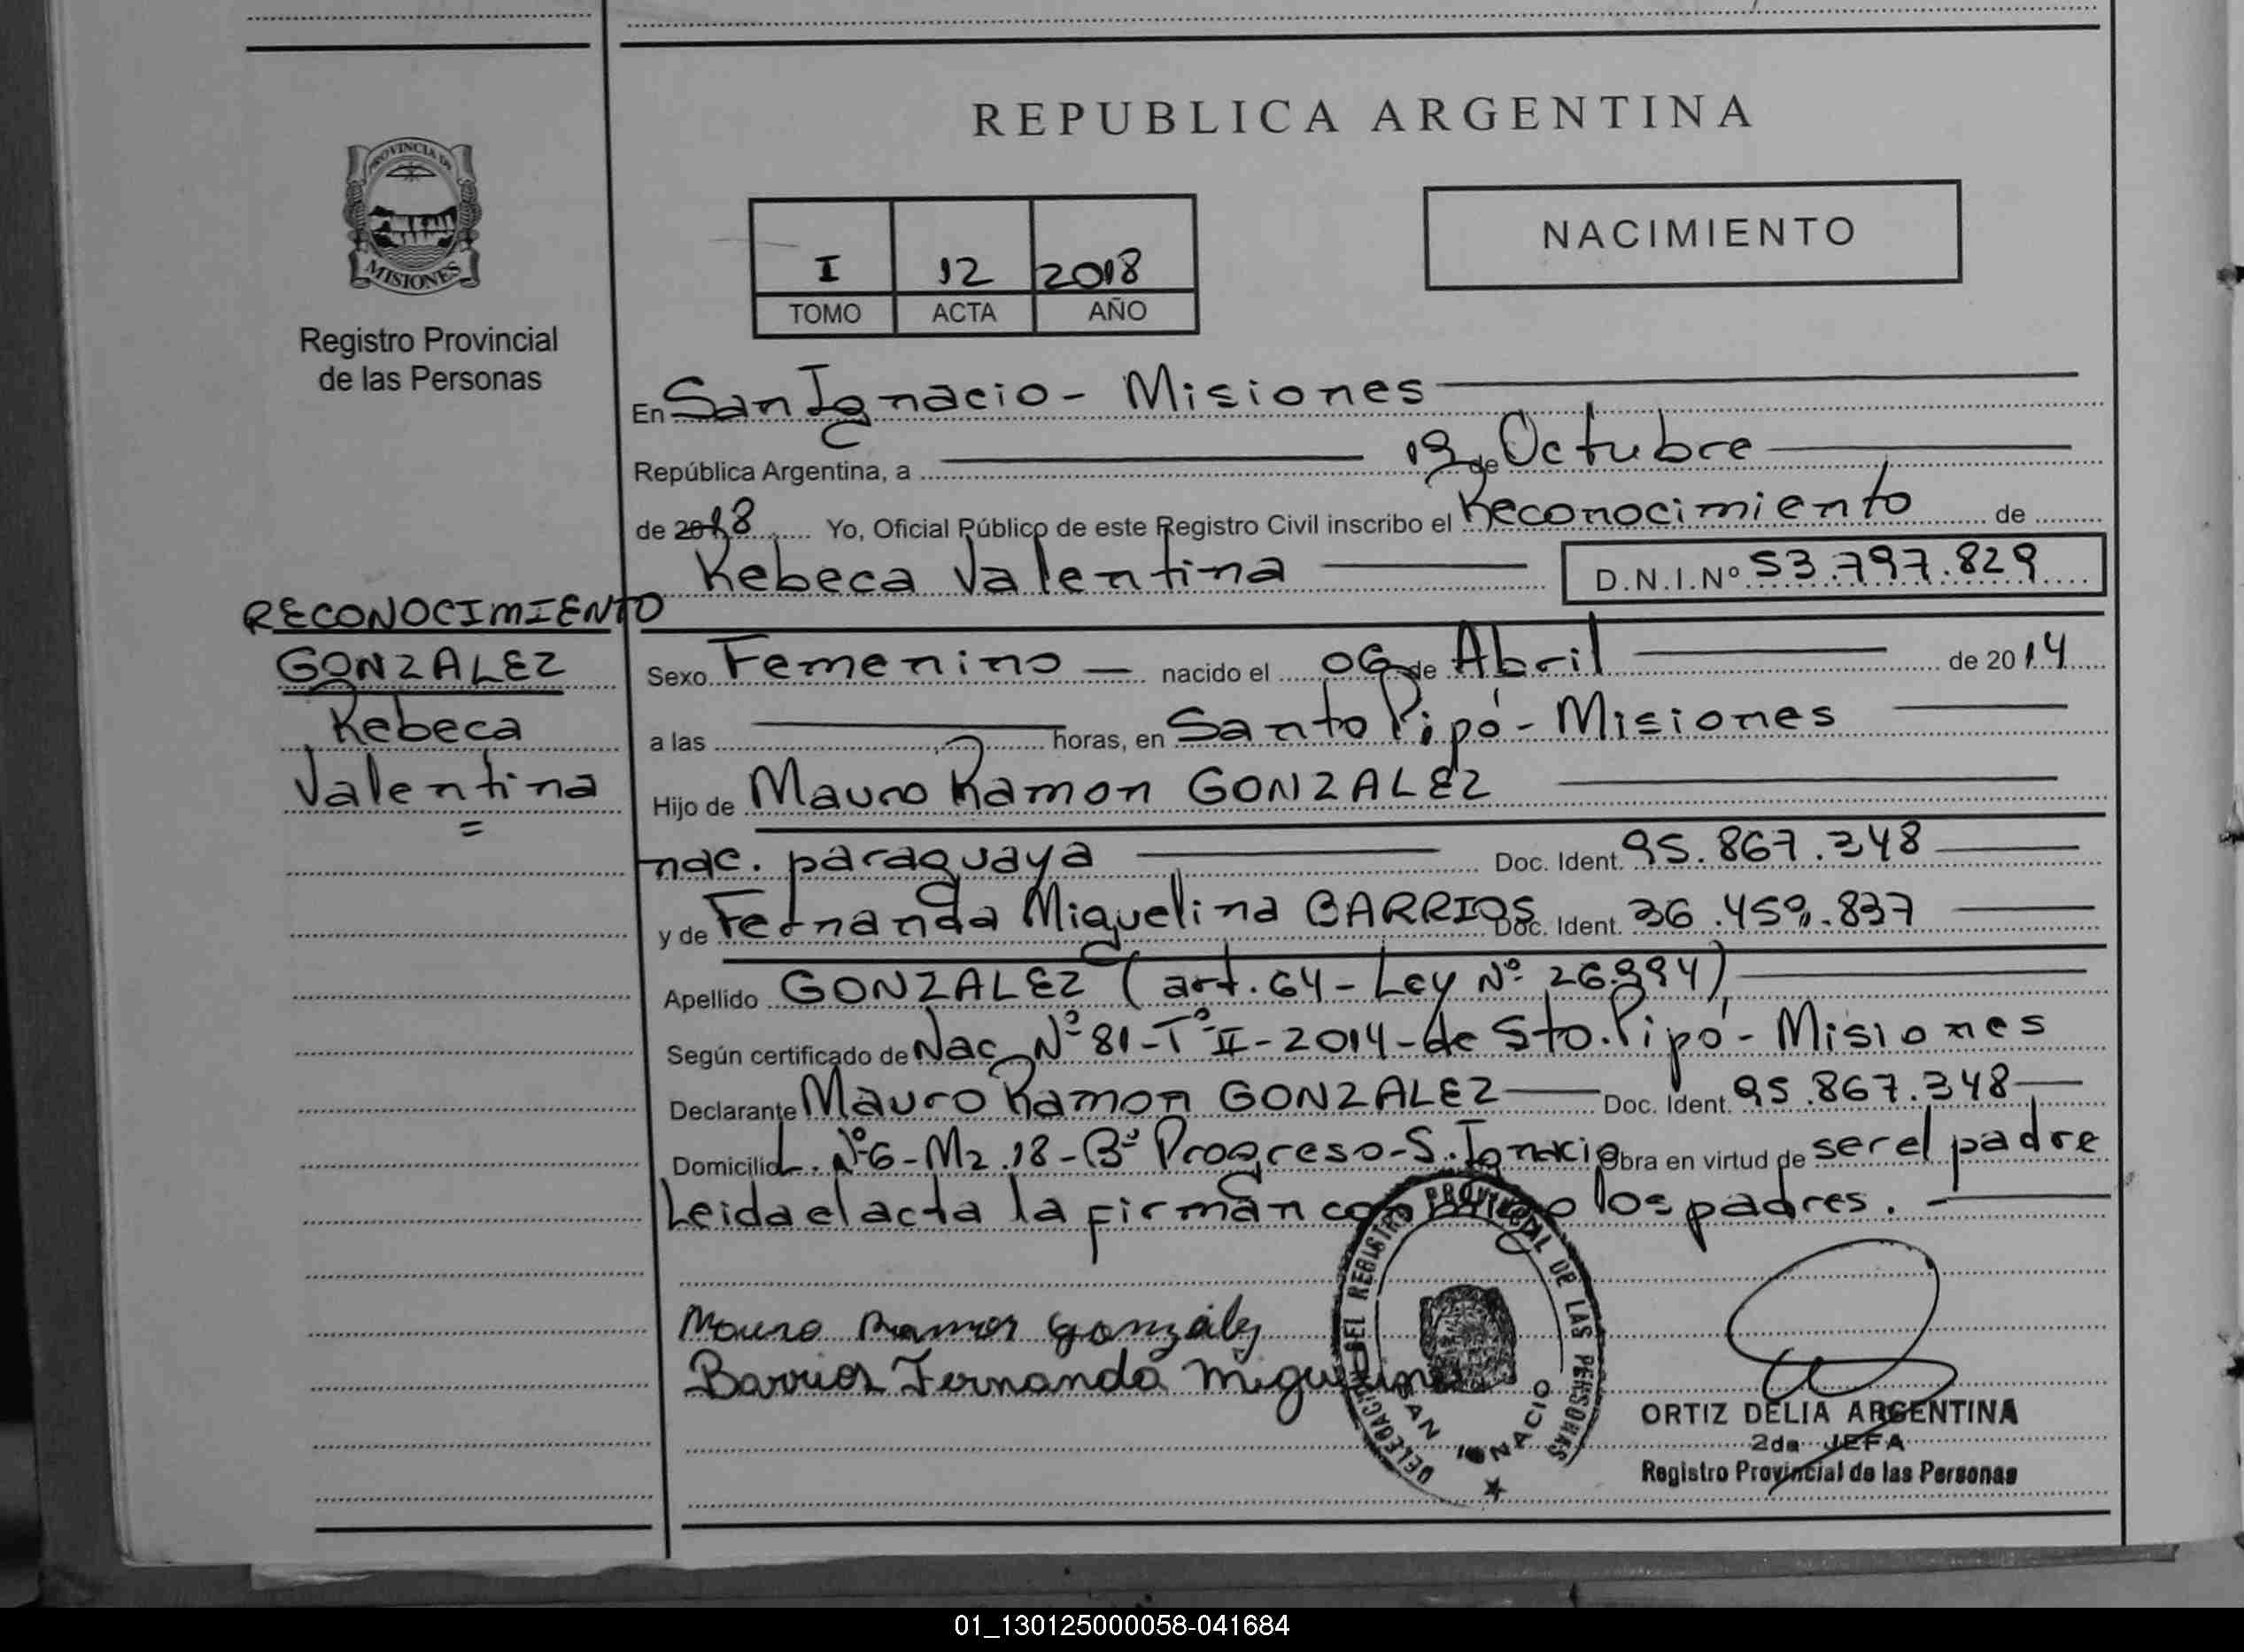 REPUBLICA ARGENTINA
PROVINCIA DE
MISIONES
Registro Provincial
de las Personas
NACIMIENTO
I 12 2018
TOMO ACTA AÑO
En San Ignacio - Misiones
República Argentina, a 19 de Octubre
de 2018 Yo, Oficial Público de este Registro Civil inscribo el Reconocimiento de
Rebeca Valentina D.N.I.Nº 53.797.829
RECONOCIMIENTO
GONZALEZ
Rebeca
Valentina
=
Sexo Femenino nacido el 06 de Abril de 2014
a las horas, en Santo Pipó - Misiones
Hijo de Mauro Ramon GONZALEZ
nac. paraguaya Doc. Ident. 95.867.348
y de Fernanda Miguelina BARRIOS Doc. Ident. 36.459.837
Apellido GONZALEZ (art. 64 - Ley Nº 26.994)
Según certificado de Nac. Nº 81 - Tº II - 2014 - de Sto. Pipó - Misiones
Declarante Mauro Ramon GONZALEZ Doc. Ident. 95.867.348
Domicilio L. Nº 6 - Mz. 18 - Bº Progreso - S. Ignacio Obra en virtud de ser el padre
Leida el acta la firman conmigo los padres. -
Mauro Ramon González
Barrios Fernanda Miguelina
DELEGACION DEL REGISTRO PROVINCIAL DE LAS PERSONAS
SAN IGNACIO
ORTIZ DELIA ARGENTINA
2da JEFA
Registro Provincial de las Personas
01_130125000058-041684